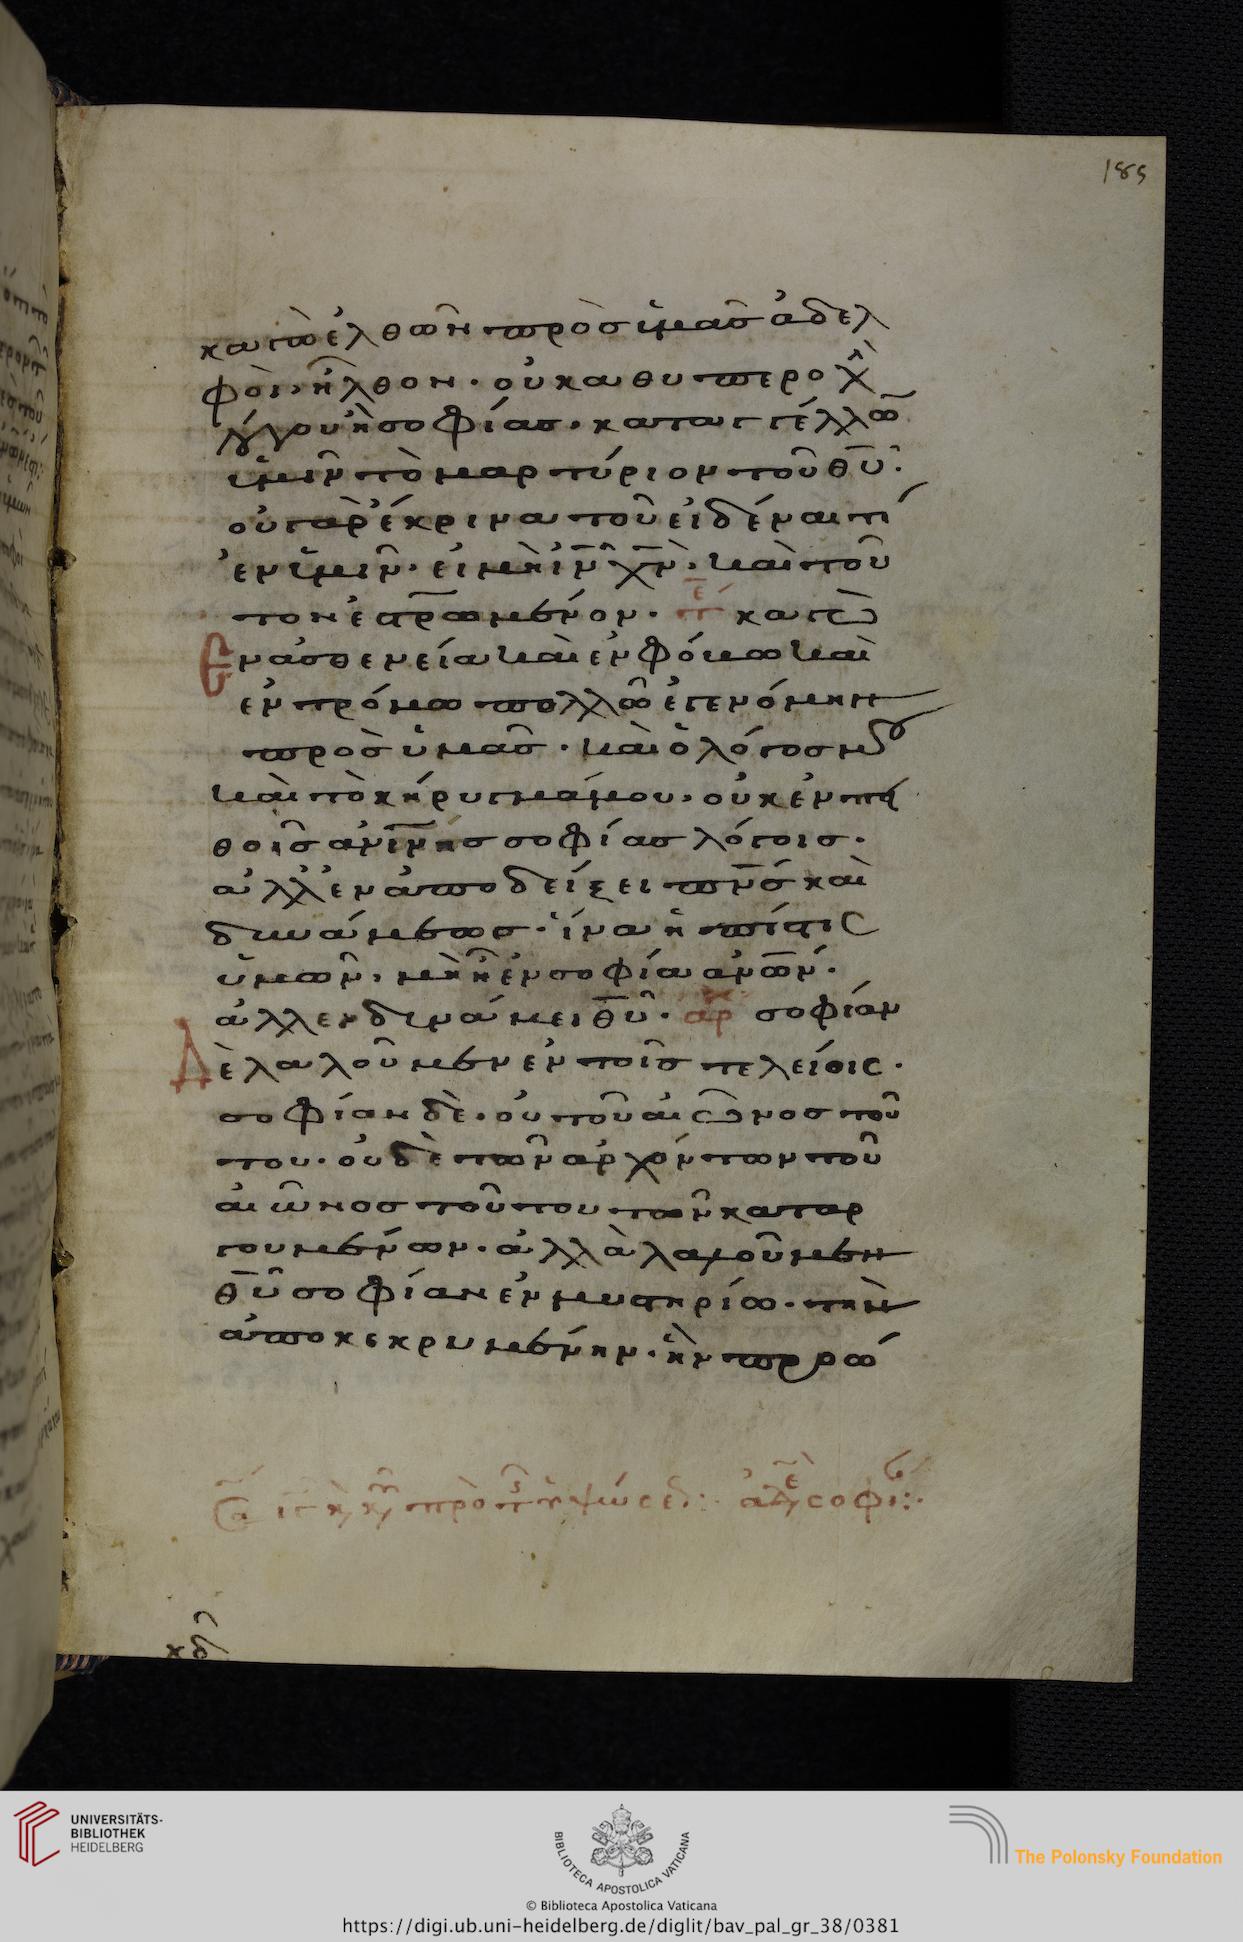 185
καγὼ ἐλθὼν πρὸσ ὑμᾶσ ἀδελ
φοὶ, ἦλθον · οὐ καθυπεροχὴν
λόγου ἢ σοφίασ · καταγγέλλων
ὑμῖν τὸ μαρτύριον τοῦ θυ ·
οὐ γὰρ ἔκρινα τοῦ εἰδέναι τί
ἐν ὑμῖν · εἰ μὴ ιν χν · καὶ τοῦ
τον ἐστρωμένον · τε καγὼ
ἐν ἀσθενεία καὶ ἐν φόβω καὶ
ἐν τρόμω πολλῶ ἐγενόμην
πρὸσ ὑμᾶσ · καὶ ὁ λόγοσ μου
καὶ τὸ κήρυγμά μου · οὐκ ἐν πει
θοῖσ ανινησ σοφίασ λόγοισ ·
ἀλλ' ἐν ἀποδείξει πνσ καὶ
δυνάμεωσ · ἵνα ἡ πίστισ
ὑμῶν, μὴ ἦ ἐν σοφία ανων ·
ἀλλ εν δυνάμει θυ · αρχ σοφίαν
δὲ λαλοῦμεν ἐν τοῖσ τελείοισ ·
σοφίαν δὲ · οὐ τοῦ αἰῶνοσ τού
του · οὐδὲ τῶν ἀρχόντων τοῦ
αἰῶνοσ τούτου τῶν καταρ
γουμένων · ἀλλὰ λαλοῦμεν
θυ σοφίαν ἐν μυστηρίω · τὴν
ἀποκεκρυμμένην · ἣν προώ
κδ
UNIVERSITÄTS-
BIBLIOTHEK
HEIDELBERG
BIBLIOTECA APOSTOLICA VATICANA
The Polonsky Foundation
© Biblioteca Apostolica Vaticana
https://digi.ub.uni-heidelberg.de/diglit/bav_pal_gr_38/0381